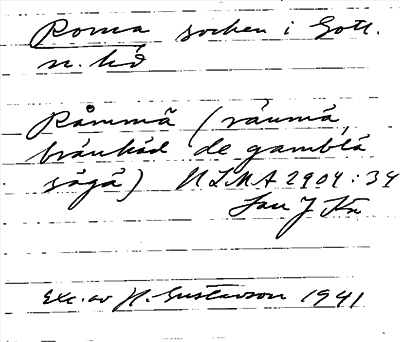 Roma socken i Gotl.
n. hd
Råmmä (råumä,
bräukäd de gamblä
sägä) ULMA 2904:34
Exc. av H. Gustavson 1941